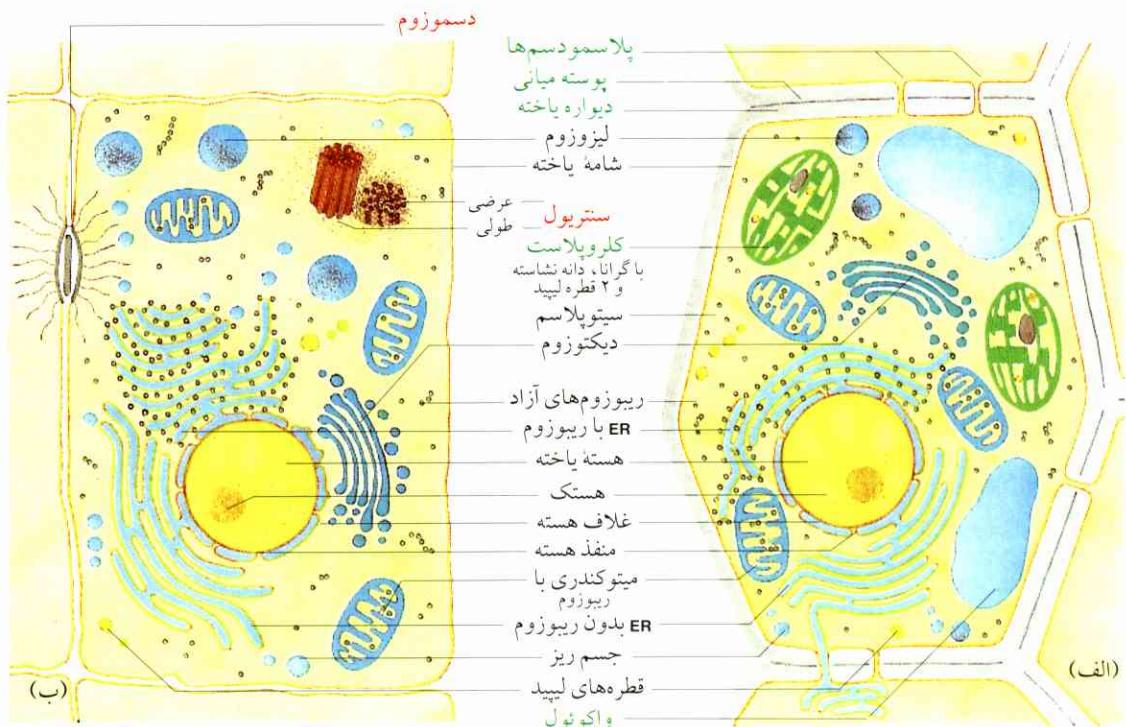 دسموزوم
پلاسمودسم‌ها
پوسته میانی
دیواره یاخته
لیزوزوم
شامهٔ یاخته
عرضی
سنتریول
طولی
کلروپلاست
با گرانا، دانه نشاسته
و ۲ قطره لیپید
سیتوپلاسم
دیکتوزوم
ریبوزوم‌های آزاد
ER با ریبوزوم
هستهٔ یاخته
هستک
غلاف هسته
منفذ هسته
میتوکندری با
ریبوزوم
ER بدون ریبوزوم
جسم ریز
(الف)
قطره‌های لیپید
(ب)
واکوئول